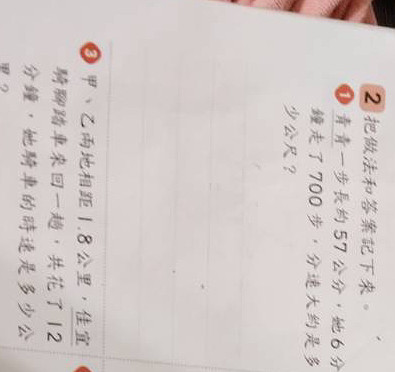 2 把做法和答案記下來。
1 青青一步長約57公分，她6分
鐘走了700步，分速大約是多
少公尺？
3 甲、乙兩地相距1.8公里，佳宜
騎腳踏車來回一趟，共花了12
分鐘，她騎車的時速是多少公
里？